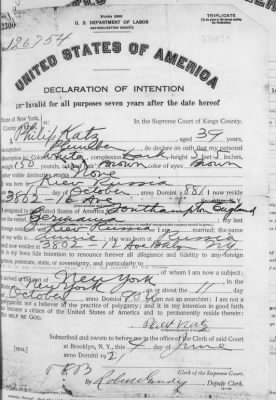 TRIPLICATE
U. S. DEPARTMENT OF LABOR
NATURALIZATION SERVICE
No. 126754
UNITED STATES OF AMERICA
DECLARATION OF INTENTION
Invalid for all purposes seven years after the date hereof
State of New York,
In the Supreme Court of Kings County.
Philip Katz, aged 39 years,
occupation Plumber, do declare on oath that my personal
description is: Color White, complexion Dark, height 5 feet 3 inches,
weight 150 pounds, color of hair Brown, color of eyes Brown
other visible distinctive marks None
I was born in Kiev Russia
October, anno Domini 1881; I now reside
3802-15 Ave
I emigrated to the United States of America from Southampton England
; my last
Kiev Russia; I am married; the name
of my wife is Annie; she was born in Russia
and now resides at 3802-15 Ave Bklyn NY
It is my bona fide intention to renounce forever all allegiance and fidelity to any foreign
prince, potentate, state, or sovereignty, and particularly to
of whom I am now a subject;
I arrived at the port of New York
New York, on or about the 11 day
anno Domini; I am not an anarchist; I am not a
polygamist nor a believer in the practice of polygamy; and it is my intention in good faith
to become a citizen of the United States of America and to permanently reside therein:
SO HELP ME GOD.
Subscribed and sworn to before me in the office of the Clerk of said Court
at Brooklyn, N. Y., this day of June
anno Domini 1921
[SEAL]
Clerk of the Supreme Court.
Deputy Clerk.